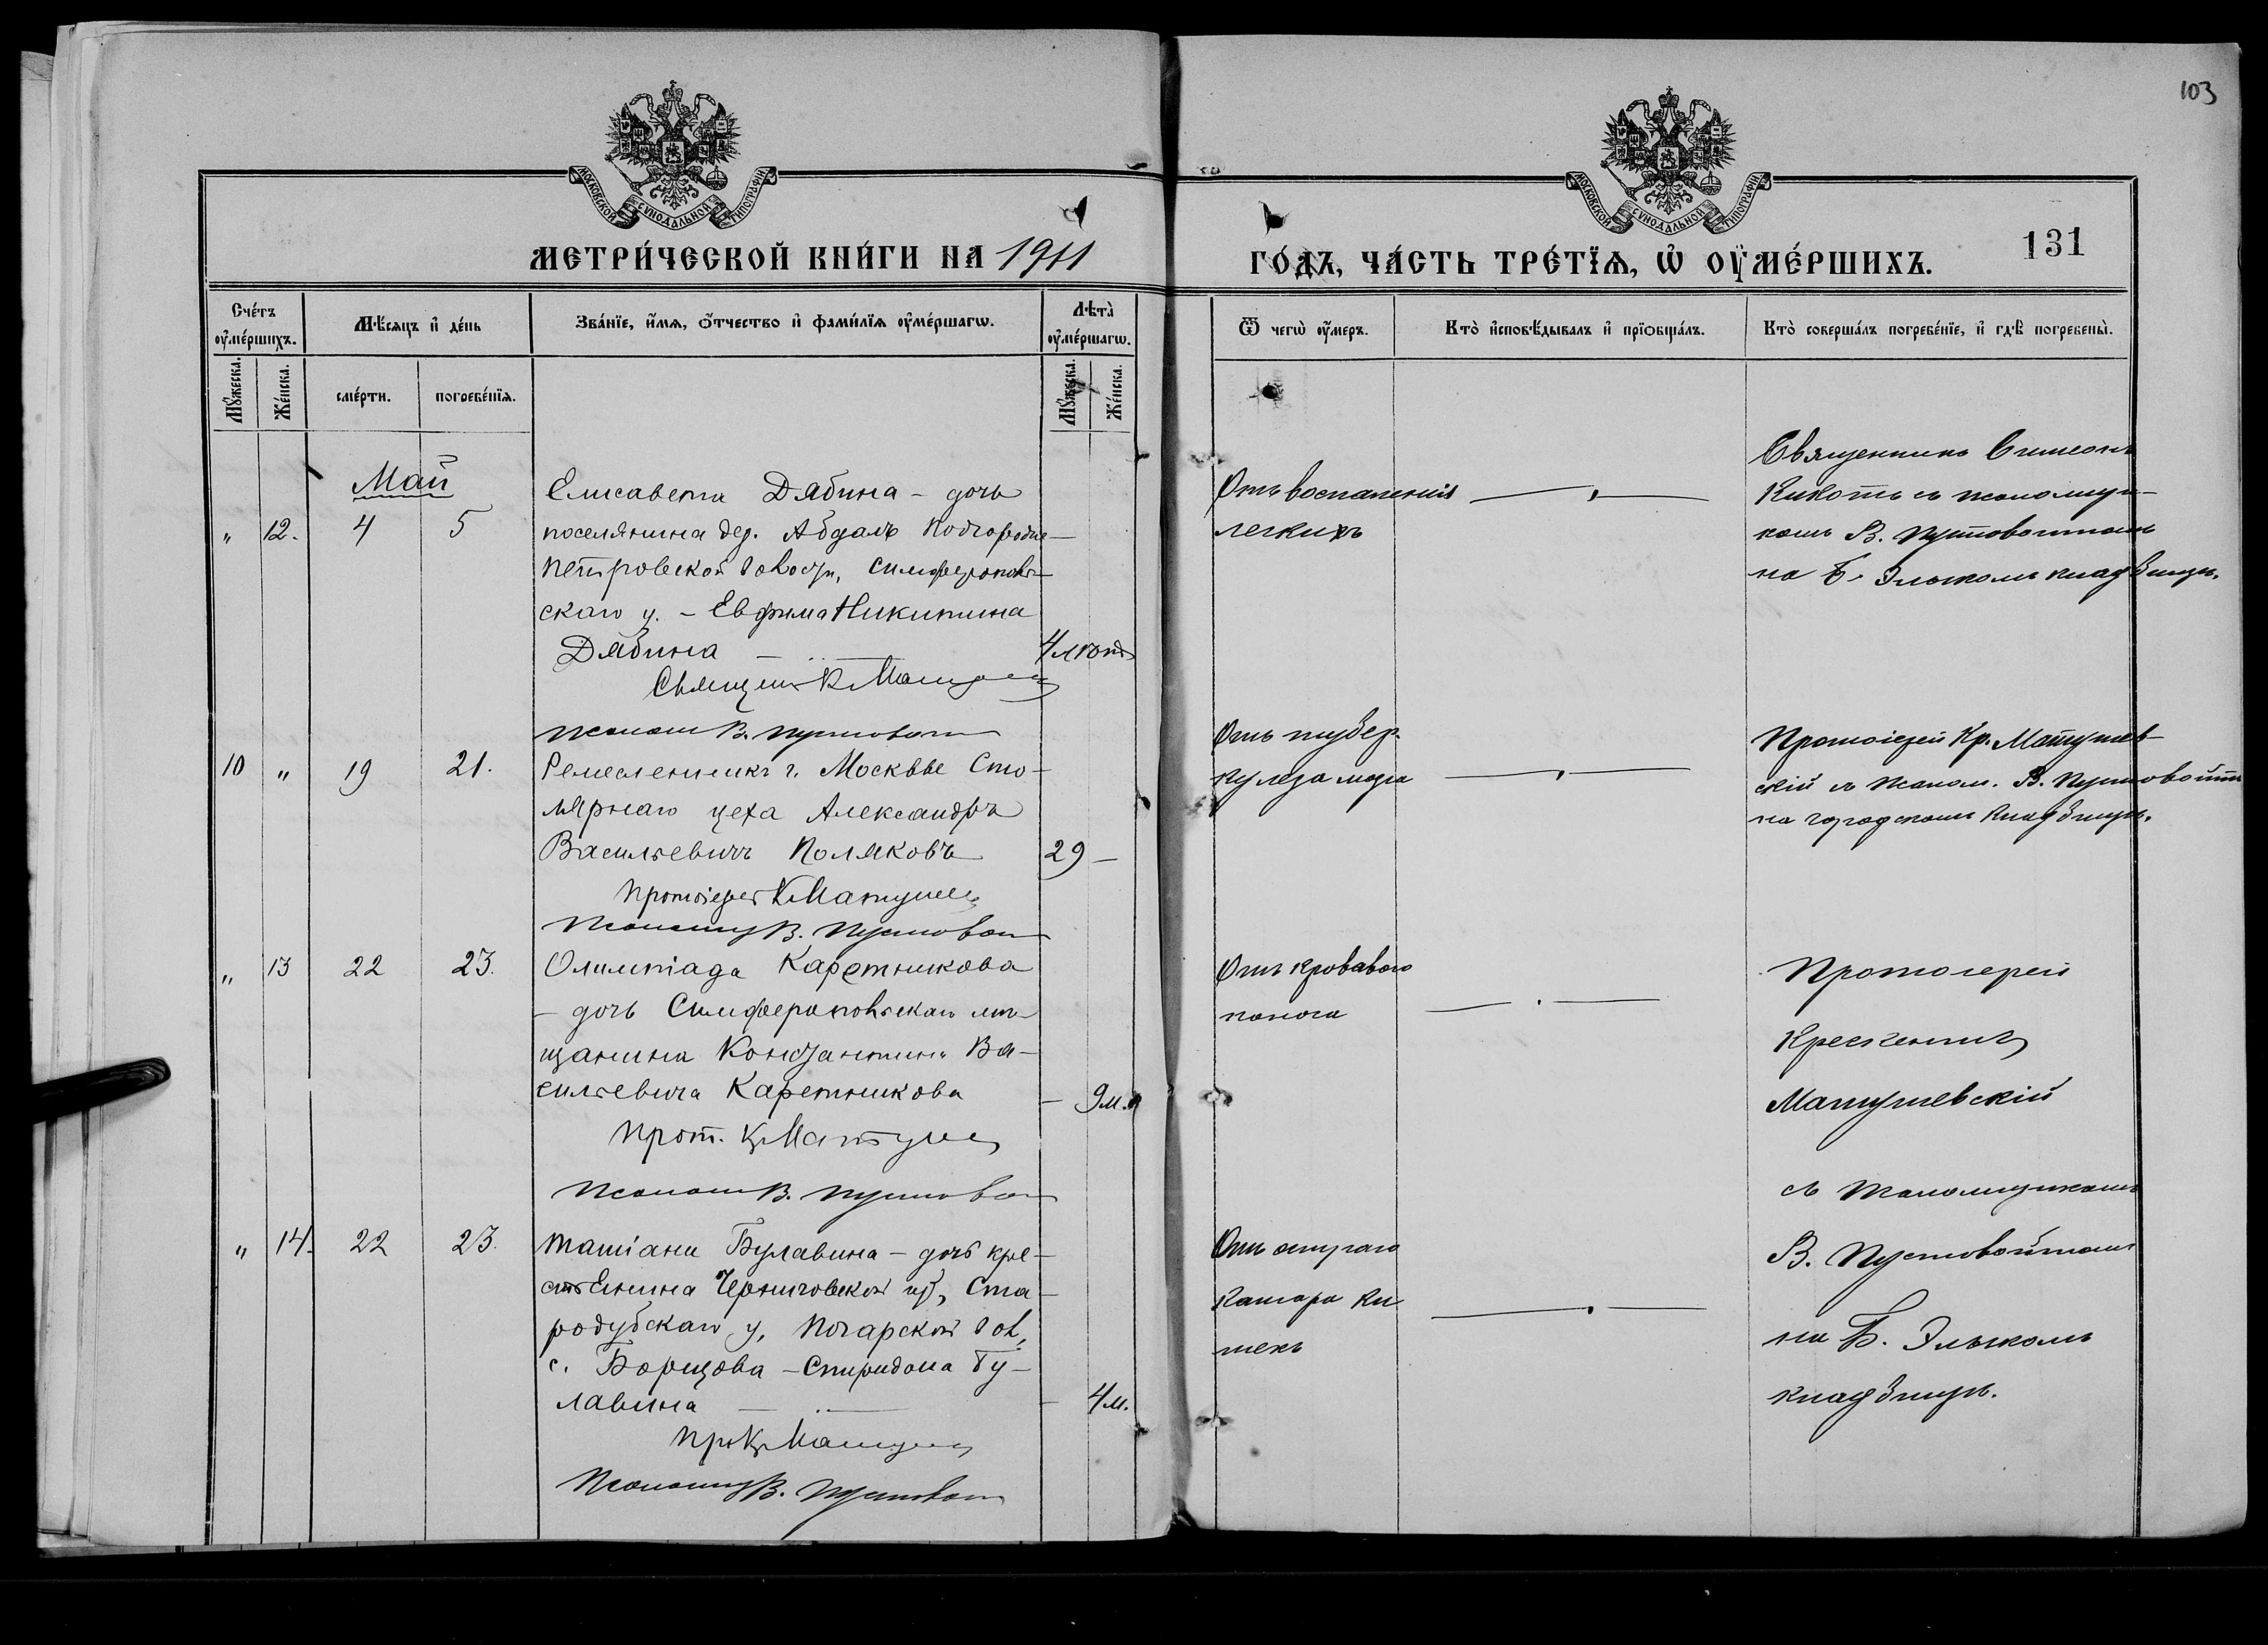 103
МОСКОВСКОЙ СѴНОДАЛЬНОЙ ТИПОГРАФІИ
МОСКОВСКОЙ СѴНОДАЛЬНОЙ ТИПОГРАФІИ
МЕТРИ́ЧЕСКОЙ КНИ́ГИ НА 1911
ГО́ДЪ, ЧА́СТЬ ТРЕ́ТЇѦ, Ѡ҆ ОУ҆МЕ́РШИХЪ.
131
Сче́тъ оу҆ме́ршихъ.
Мѣ́сяцъ и҆ де́нь
Зва́нїе, и҆́мѧ, ѻ҆́тчество и҆ фами́лїѧ оу҆ме́ршагѡ.
Лѣ́та оу҆ме́ршагѡ.
Ѿ чегѡ̀ оу҆́меръ.
Кто̀ и҆сповѣ́дывалъ и҆ прїѻбща́лъ.
Кто̀ соверша́лъ погребе́нїе, и҆ гдѣ̀ погребены̀.
Мꙋ́жеска.
Же́нска.
сме́рти.
погребе́нїѧ.
Мꙋ́жеска.
Же́нска.
Май
" 12. 4 5
Елисавета Дябина - дочь
поселянина дер. Абдалъ Подгородне-
Петровской волости, Симферополь-
скаго у. - Евфима Никитина
Дябина
Священ К Матуш
Псалом В. Пустовойт
Отъ воспаленія
легкихъ
Священникъ Симеонъ
Кикоть съ псаломщи-
комъ В. Пустовойтомъ
на Б. кладбищѣ.
10 " 19 21.
Ремесленникъ г. Москвы Сто-
лярнаго цеха Александръ
Васильевичъ Поляковъ
29 -
Протоіерей К Матушев
Псаломщ В. Пустовойт
Отъ тубер-
кулеза мозга
Протоіерей Кр. Матушев-
скій съ псалом. В. Пустовойтомъ
на городскомъ кладбищѣ.
" 13 22 23.
Олимпіада Каретникова
- дочь Симферопольскаго мѣ-
щанина Константина Ва-
сильевича Каретникова
- 9 м.
Прот. К Матушев
Псалом В. Пустовой
Отъ кроваваго
поноса
Протоіерей
Крескентій
Матушевскій
съ псаломщикомъ
В. Пустовойтомъ
на Б.
кладбищѣ.
" 14. 22 23.
Татіана Булавина - дочь кре-
стьянина Черниговской губ, Ста-
родубскаго у, Погарской вол,
с. Борщова - Спиридона Бу-
лавина
- 4 м.
Пр. К Матуш
Псаломщ В. Пустовой
Отъ остраго
катара ки
шекъ